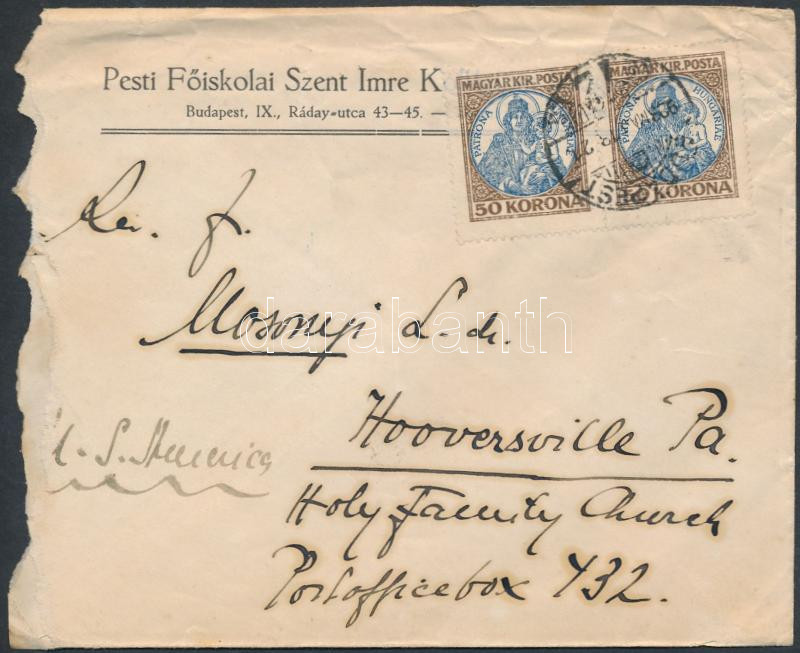 Pesti Főiskolai Szent Imre K
Budapest, IX., Ráday-utca 43—45. —
MAGYAR KIR. POSTA
PATRONA HUNGARIAE
50 KORONA
MAGYAR KIR. POSTA
PATRONA HUNGARIAE
50 KORONA
Rev. f.
Mosonyi L. dr.
darabanth
Hooversville Pa.
U. S. America
Holy Family Church
Postofficebox 432.